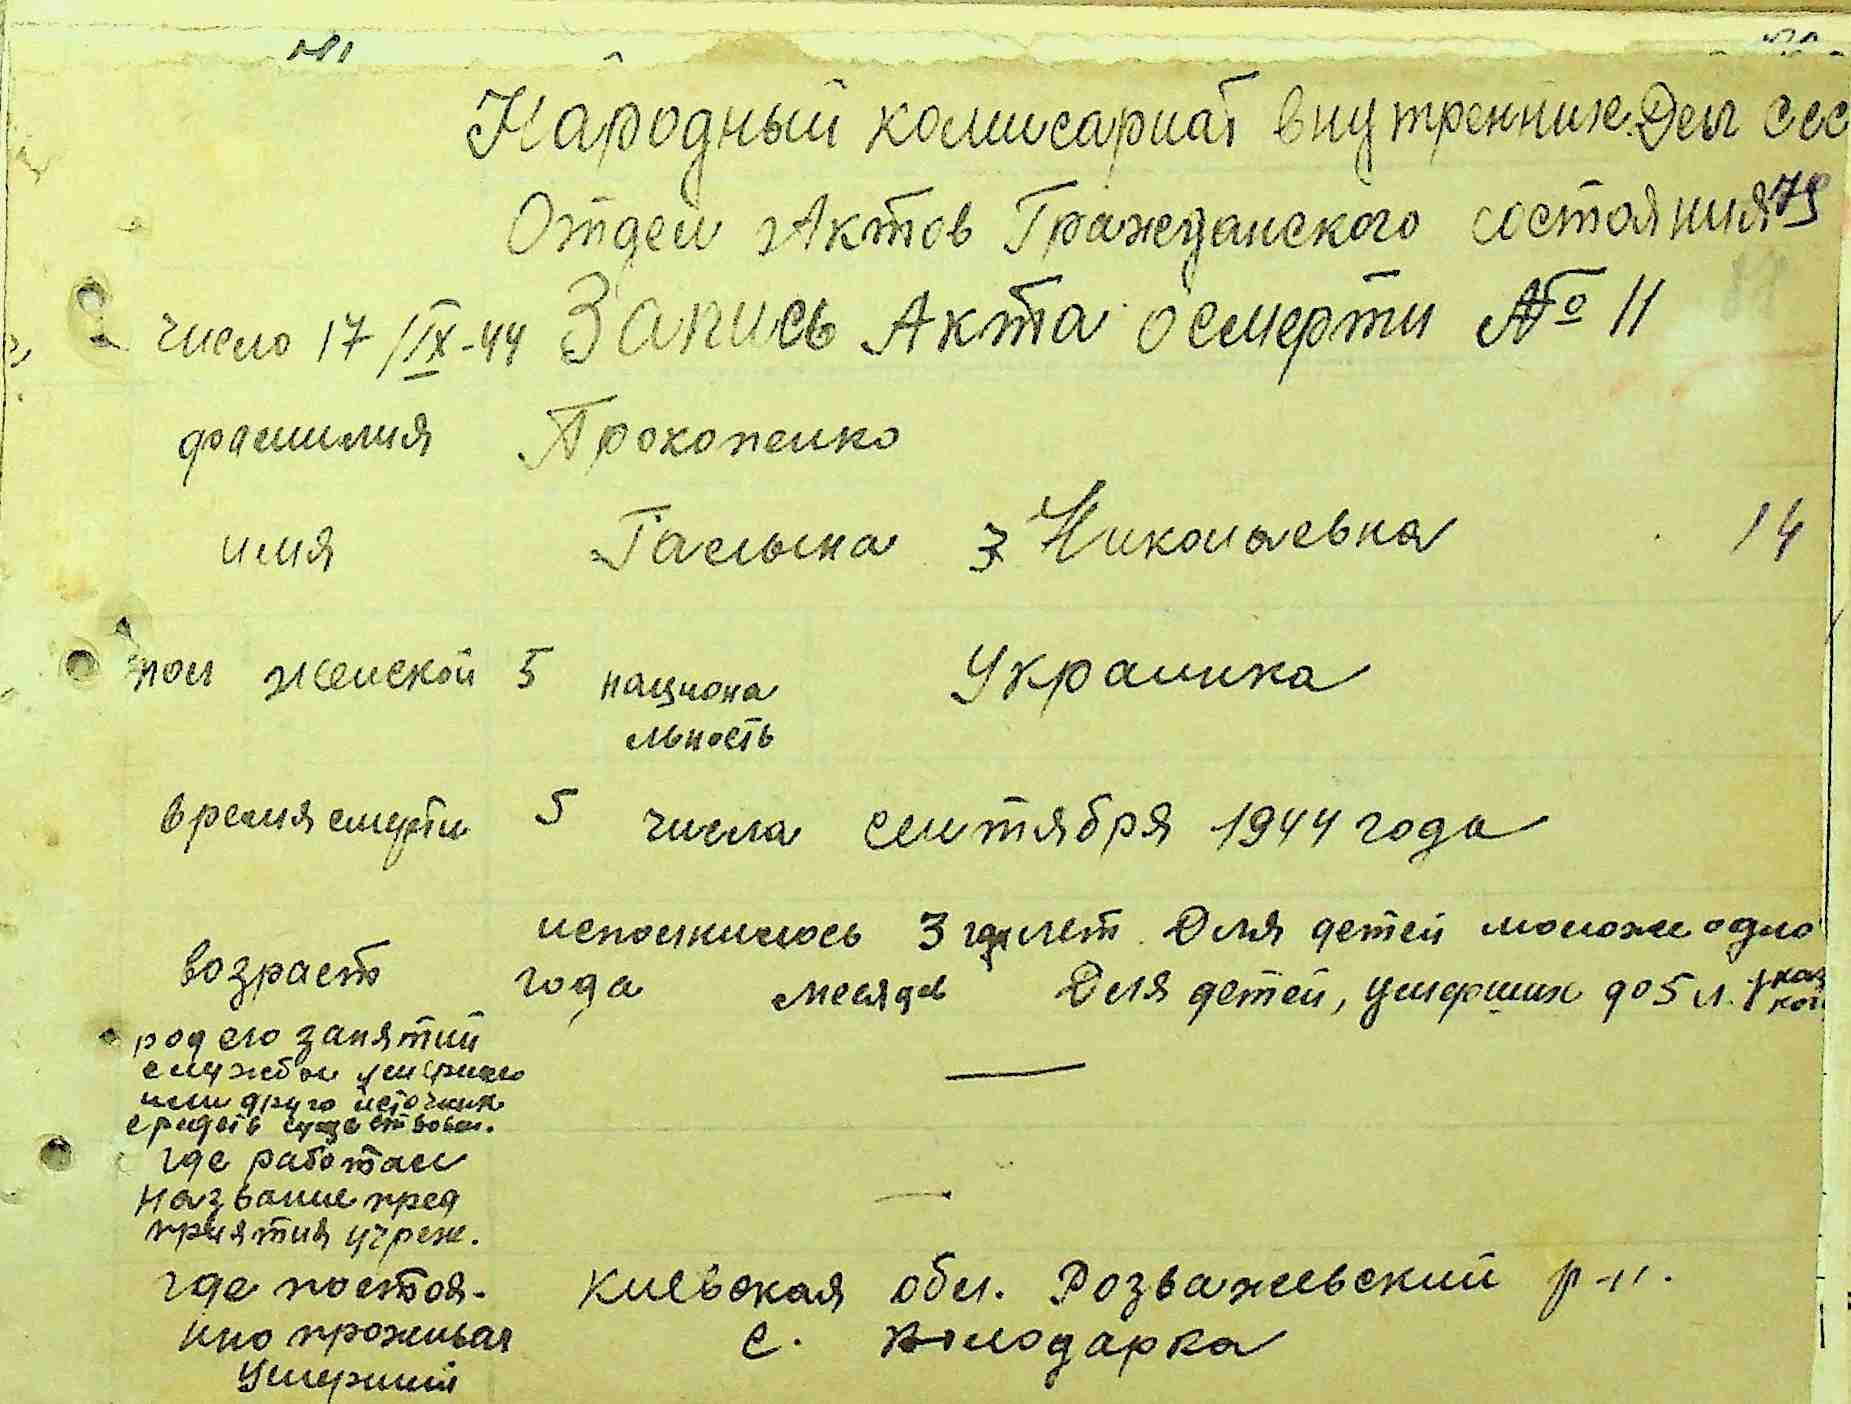 Народный комисариат внутрених Дел ссс
Отдел Актов Гражданского состояния 79
число 17/IX-44 Запись Акта о смерти № 11
фамилия Прокопенко
имя Галына 3 Николаевна 14
пол женской 5 национа
льность Украинка
время смерти 5 числа сентября 1944 года
исполнилось 3 года лет. Для детей моложе одно
возраст года месяцев Для детей, умерших до 5 л.
род его занятий
службы умершего —
или друго источник
средств существован.
где работал
название пред —
приятия учреж.
где постоя- Киевская обл. Розважевский р-н.
нно проживал с. Володарка
Умерший